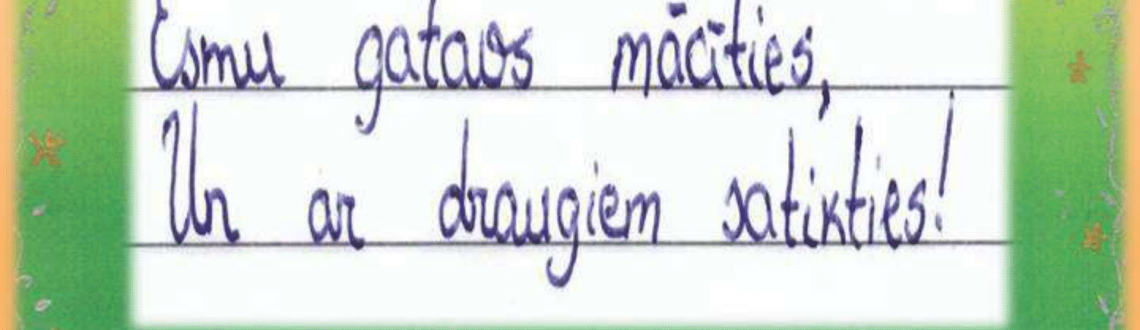 Esmu gatavs mācīties,
Un ar draugiem satikties!